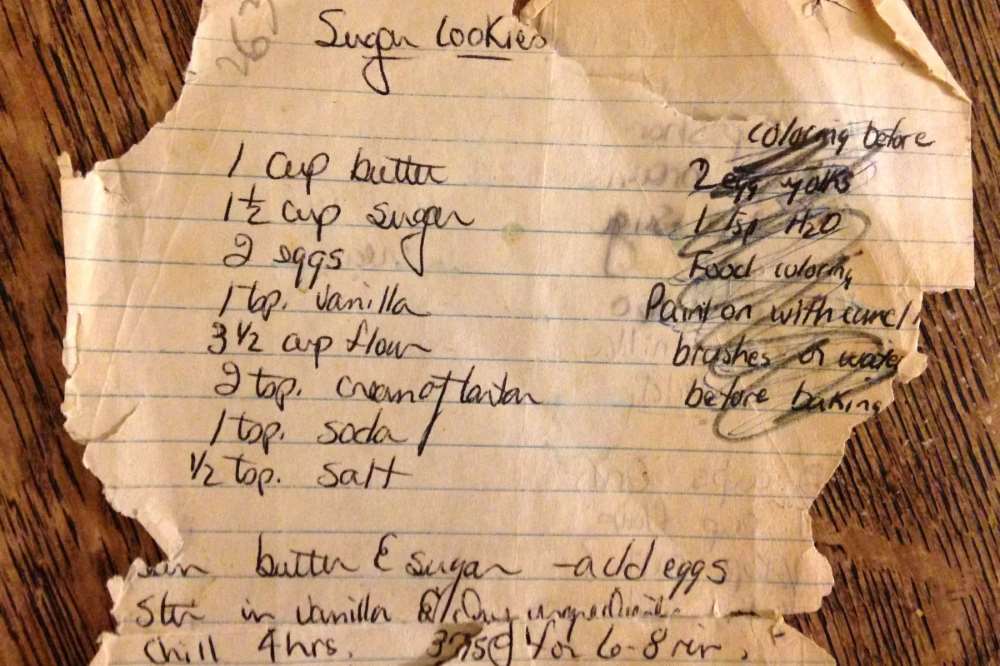 263
Sugar Cookies
1 cup butter
1 ½ cup sugar
2 eggs
1 tsp. vanilla
3 ½ cup flour
2 tsp. cream of tartar
1 tsp. soda
½ tsp. salt
coloring before
2 egg yolks
1 tsp H2O
Food coloring
Paint on with
brushes or water
before baking
butter & sugar - add eggs
Stir in vanilla & dry ingredients
Chill 4 hrs. 375@ for 6-8 min.